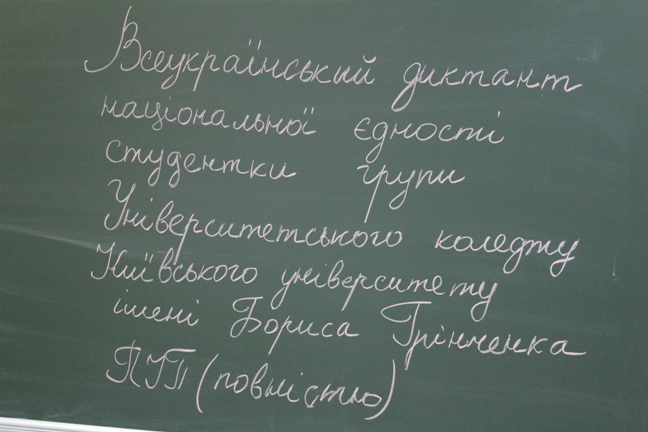 Всеукраїнський диктант
національної єдності
студентки групи
Університетського коледжу
Київського університету
імені Бориса Грінченка
ПІП (повністю)